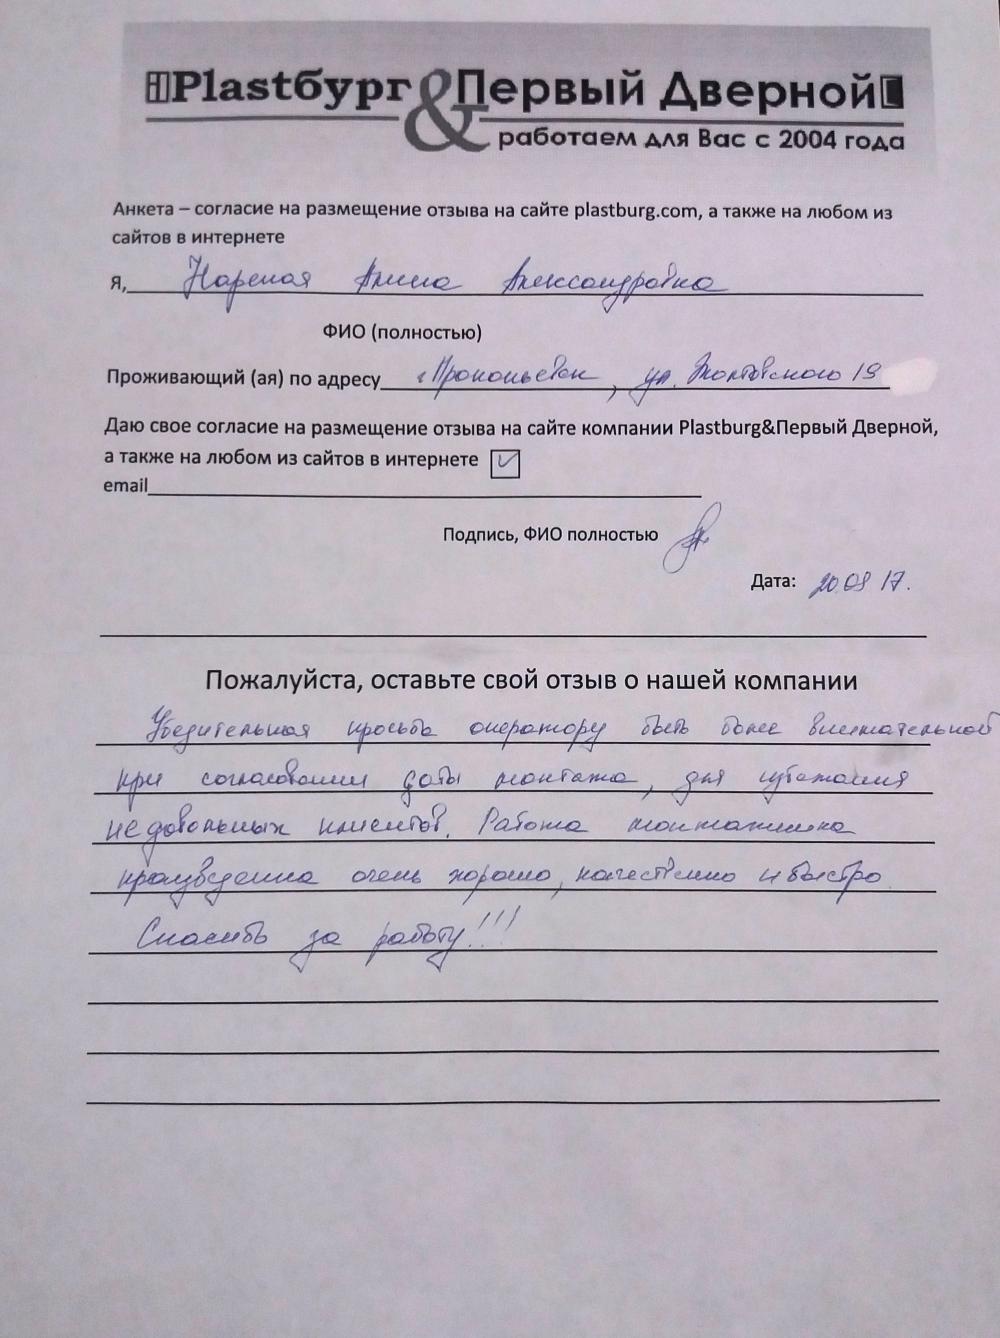 Plastбург & Первый Дверной
работаем для Вас с 2004 года
Анкета – согласие на размещение отзыва на сайте plastburg.com, а также на любом из
сайтов в интернете
Я, Александровна
ФИО (полностью)
Проживающий (ая) по адресу г Прокопьевск, ул. 19
Даю свое согласие на размещение отзыва на сайте компании Plastburg&Первый Дверной,
а также на любом из сайтов в интернете
email
Подпись, ФИО полностью
Дата: 20.09 17.
Пожалуйста, оставьте свой отзыв о нашей компании
Убедительная просьба оператору быть более внимательной
при согласовании даты монтажа, для избежания
недовольных клиентов. Работа монтажника
произведена очень хорошо, качественно и быстро.
Спасибо за работу!!!